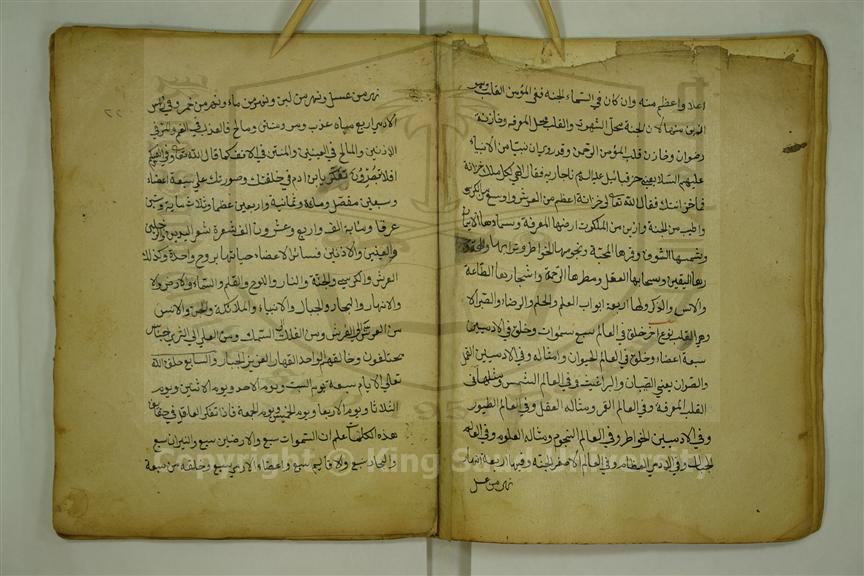 اعلا واعظم منه وان كان في السماء الجنة ففي المؤمن القلب وهو
افضل منها لان الجنة محل الشهوت والقلب محل المعرفة وخازنة
رضوان وخازن قلب المؤمن الرحمن وقد روي ان نبيا من الانبياء
عليهم السلام يعني حزقيائيل عليه السلام ناجا ربه فقال الهي لكل ملك خزانة
فما خزانتك فقال الله تعالى لي خزانة اعظم من العرش واوسع من الكرسي
واطيب من الجنة وازين من الملكوت ارضها المعرفة وسماءها الايمان
وشمسها الشوق وقمرها المحبة ونجومها الخواطر وترابها
ربها اليقين وسحابها العقل ومطرها الرحمة واشجارها الطاعة
ولها اربعة ابواب العلم والحلم والرضاء والصبر الا
وهي القلب نوع اخر خلق في العالم سبع سموات وخلق في الادميين
سبعة اعضاء وخلق في العالم الحيوان وامثاله وفي الادميين القمل
والصئران يعني الصيبان والبراغيث وفي العالم الشمس ومثلها في
القلب المعرفة وفي العالم القمر ومثاله العقل وفي العالم الطيور
وفي الادميين الخواطر وفي العالم النجوم ومثاله العلوم وفي العالم
الجبال وفي الادمي العظام وفي العالم الاصغر الجنة وفيها اربعة انهار
نهر من عسل
نهر من عسل ونهر من لبن ونهر من ماء ونهر من خمر وفي راس
الادمي اربع مياه عذب ومر ومنتن ومالح فالعذب في الفم والمر في
الاذنين والمالح في العينين والمنتن في الانف كما قال الله تعالى وفي انفسكم
افلا تبصرون تفكر يابن ادم في خلقتك وصورتك على سبعة اعضاء
وسبعين مفصل ومائة وثمانية واربعين عظما وثلاثمائة وستين
عرقا ومائة الف واربع وعشرون الف شعرة اليدين والرجلين
والعينين والاذنين فسائر الاعضاء حياتها بروح واحدة وكذلك
العرش والكرسي والجنة والنار واللوح والقلم والسماء والارض والا
والانهار والبحار والجبال والانبياء والملائكة والجن والانس
من العرش الى الفرش ومن الفلك الى السمك ومن العلى الى الثرى
مختلفون وخالقهم الواحد القهار العزيز الجبار والسابع خلق الله
تعالى الايام سبعة يوم السبت ويوم الاحد ويوم الاثنين ويوم
الثلاثا ويوم الاربعا ويوم الخميس ويوم الجمعة فاذا تفكر العاقل في
هذه الكلمات علم ان السموات سبع والارضين سبع والنيران سبع
والبحار سبع والاقاليم سبع واعضاء الادمي سبع وخلقه من سبعة
Copyright © King Saud University
1957